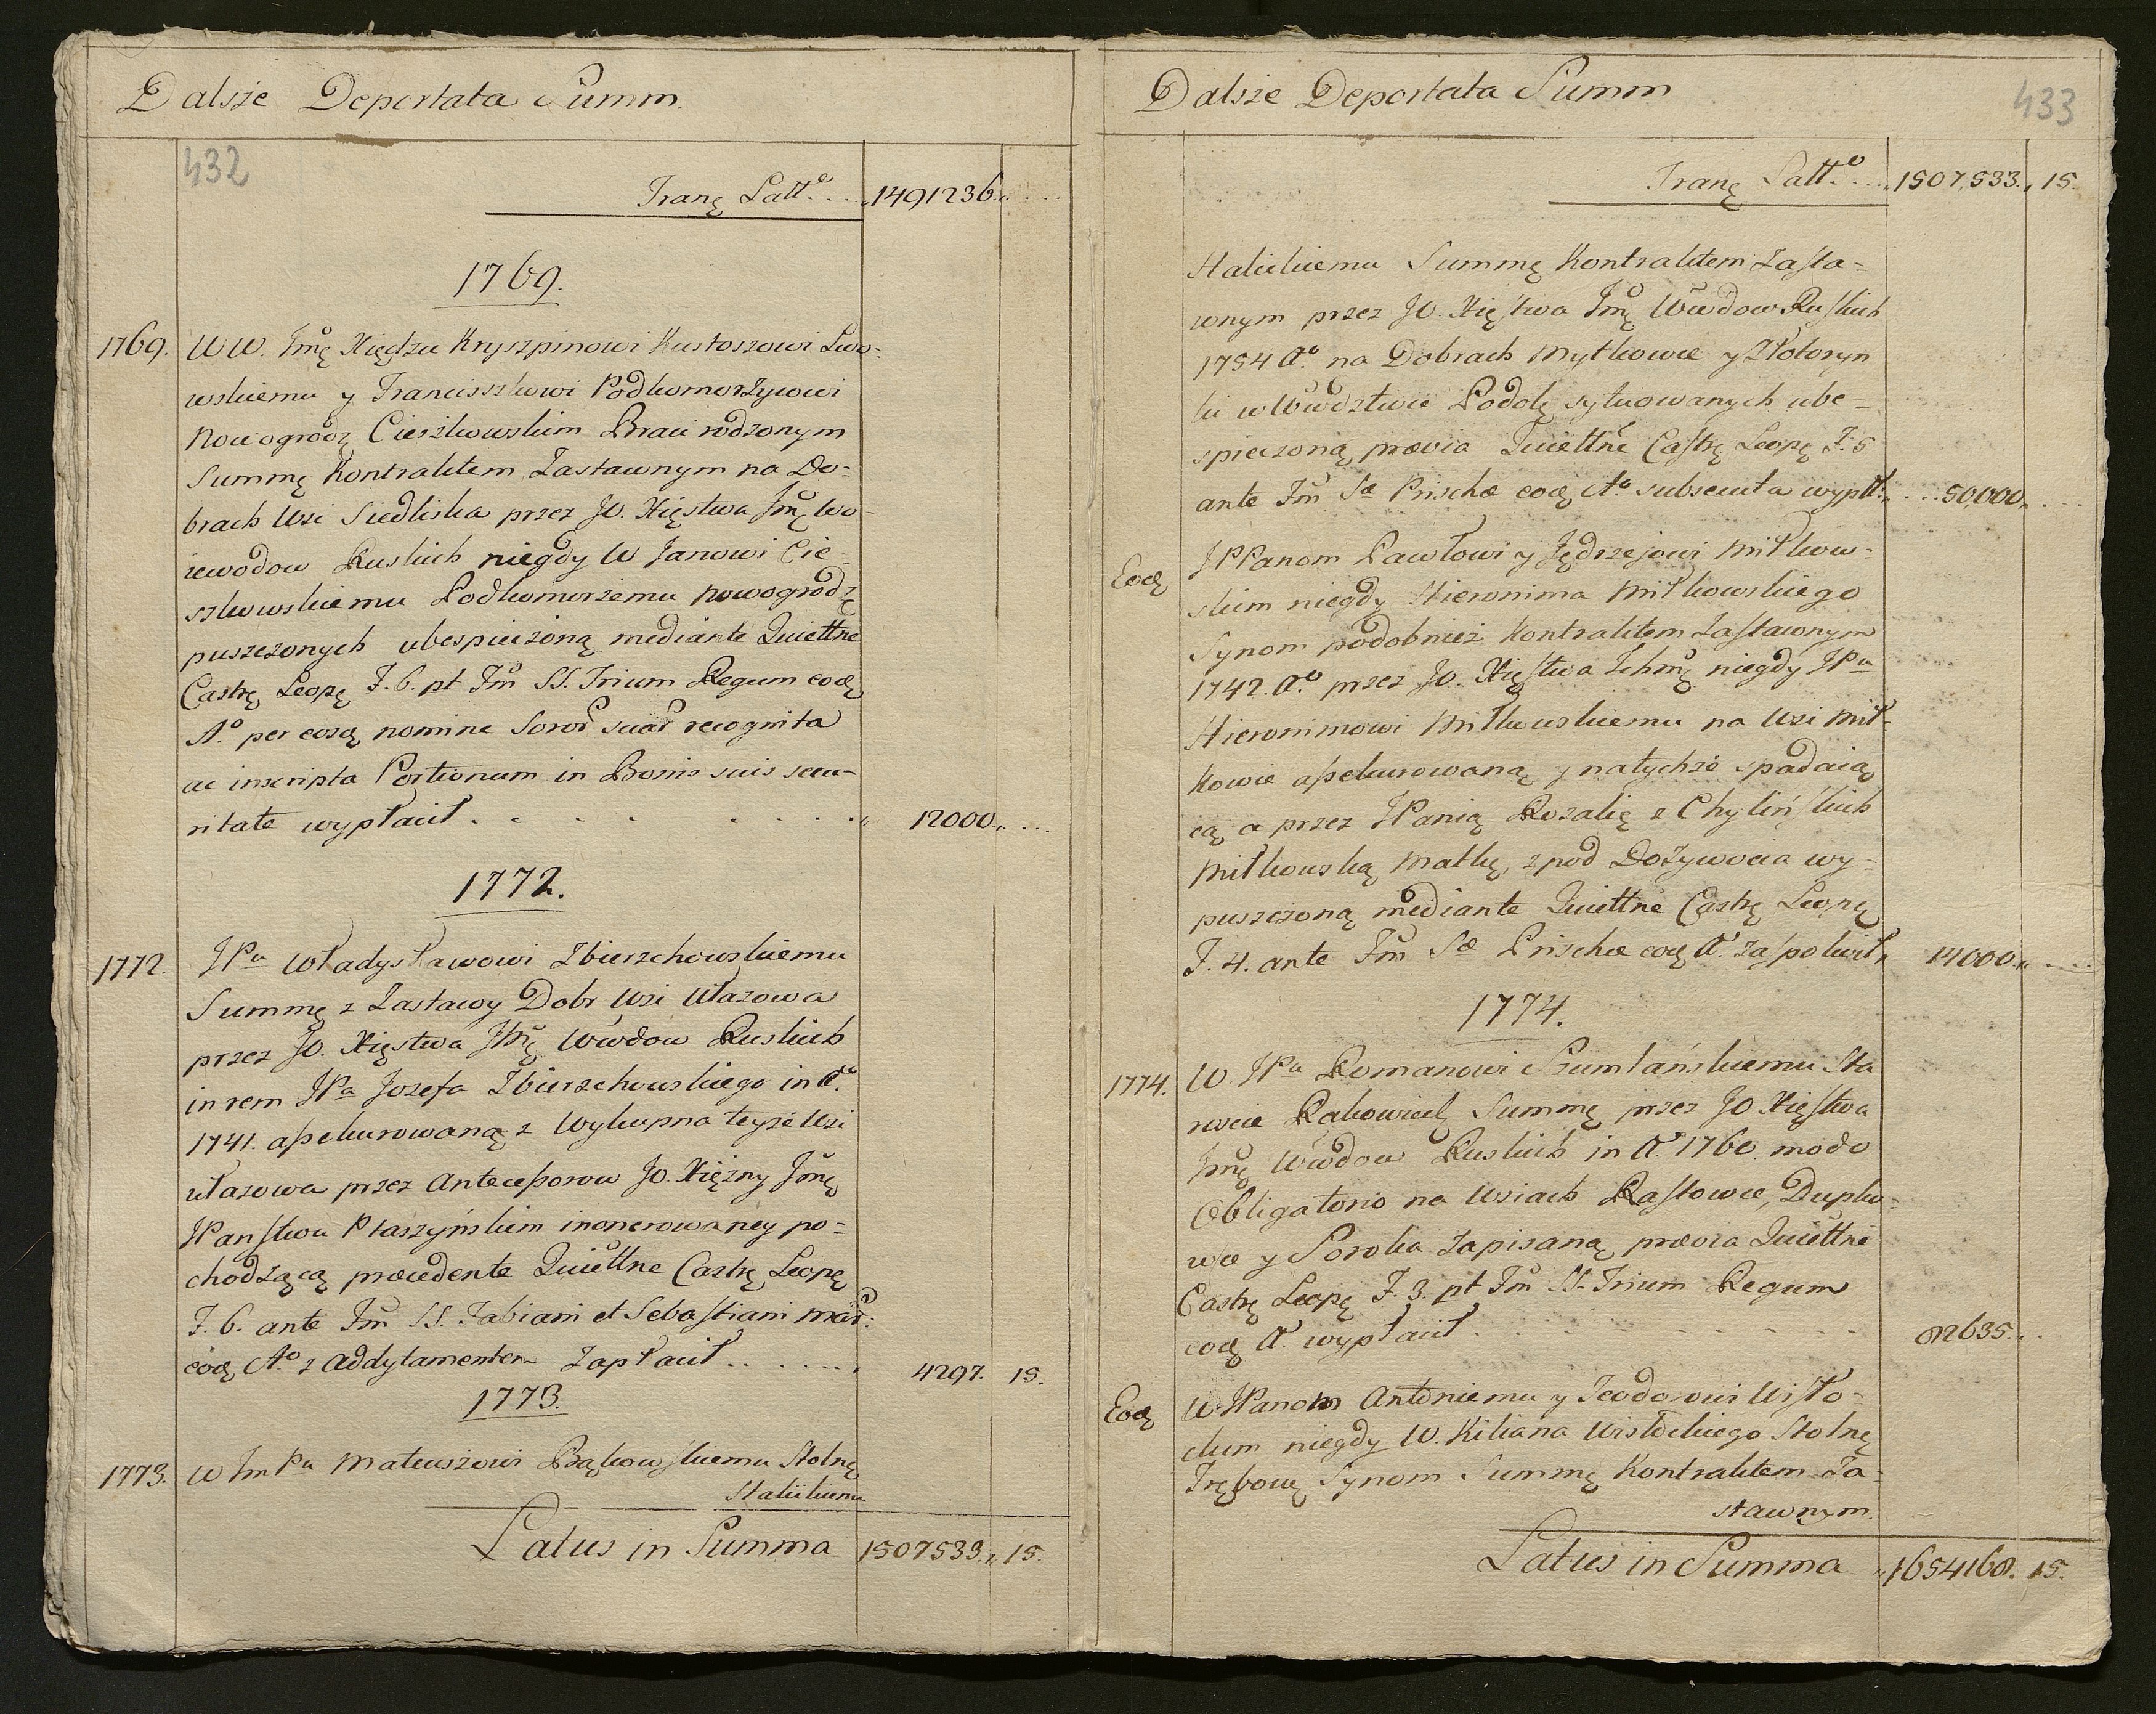 Dalsze Deportata Summ.
432
Tranę Latt.º .... 1491236. ....
1769.
1769. WW. Jmę Xiędzu Kryszpinowi Kustoszowi Lwo-
wskiemu y Franciszkowi Podkomorzycowi
Nowogrodz Cieszkowskim Braci rodzonym
Summę Kontraktem Zastawnym na Do-
brach Wsi Siedliska przez JO. Xięstwa Jmę Wo-
iewodow Ruskich niegdy W Janowi Cie-
szkowskiemu Podkomorzemu Nowogrodz
puszczonych ubespieczoną mediante Quiettne
Castrę Leopę F. 6. pt Fm SS. Trium Regum eoḍ
Aº per eosḍ nomine Soror suar recognita
ac inscripta Portionum in Bonis suis secu-
ritate wypłacił . . . . . . . . 12000. ...
1772.
1772. JPu Władysławowi Zbierzchowskiemu
Summę z Zastawy Dobr Wsi Ułazowa
przez JO. Xięstwa Jmę Wwdow Ruskich
in rem JPa Jozefa Zbierzchowskiego in Aº
1741. assekurowaną z Wykupna teyże Wsi
Ułazowa przez Antecessorow JO. Xiężny Jmę
JPanstwu Ptaszyńskim inonerowaney po-
chodzącą præcedente Quiettne Castrę Leopę
F. 6. ante Fm SS. Fabiani et Sebastiani Mar:
eoḍ Aº z Addytamentem Zapłacił ....... 4297. 15.
1773.
1773. W JmPu Mateuszowi Bąkowskiemu Stolnę
Halickiemu
Latus in Summa 1507533. 15.
Dalsze Deportata Summ
433
Tranę Latt.º .... 1507,533. 15.
Halickiemu Summę Kontraktem Zasta-
wnym przez JO. Xięstwa Jmę Wwdow Ruskich
1754 Aº na Dobrach Mytkowce y Złotoryn
ki w Wwdztwie Podolę sytuowanych ube-
spieczoną prævia Quiettne Castrę Leopę F. 5
ante Fm Sæ Prischæ eoḍ Aº subsecuta wypłł. ... 50,000. ...
Eoḍ JPPanom Pawłowi y Jędrzejowi Miłkow-
skim niegdy Hieronima Miłkowskiego
Synom podobnież Kontraktem Zastawnym
1742. Aº przez JO. Xięstwa Ichmę niegdy JPu
Hieronimowi Miłkowskiemu na Wsi Mił-
kowie assekurowaną y natychże spadaią
cą a przez JPanią Rozalię z Chylińskich
Miłkowską Matkę, z pod Dożywocia wy-
puszczoną mediante Quiettne Castrę Leopę
F. 4. ante Fm Sæ Prischæ eoḍ Aº zaspokoił 14000. ....
1774.
1774. W. JPu Romanowi Szumlańskiemu Sta
roście Rakowieck Summę przez JO. Xięstwa
Jmę Wwdow Ruskich in Aº 1760. modo
Obligatorio na Wsiach Rastowce, Dupko-
wce y Soroka Zapisaną prævia Quiettne
Castrę Leopę F. 3. pt Fm SS. Trium Regum
eoḍ Aº wypłacił . . . . . . . . . 82635. .
Eoḍ W JPanom Antoniemu y Teodorowi Wisło-
ckim niegdy W. Kiliana Wisłockiego Stolnę
Trębowę Synom Summę Kontraktem Za-
stawnym.
Latus in Summa 1654168. 15.